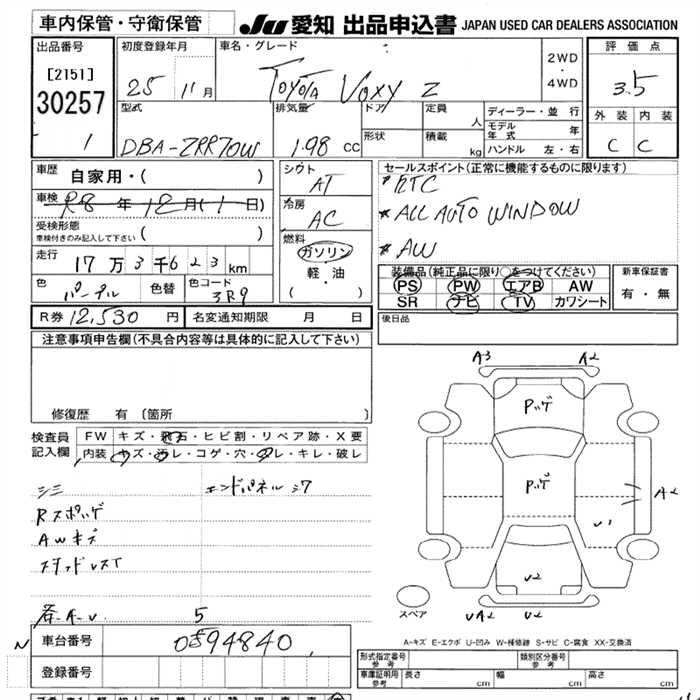 車内保管・守衛保管
JU 愛知 出品申込書 JAPAN USED CAR DEALERS ASSOCIATION
出品番号
[2151]
30257
1
初度登録年月
25 11月
車名・グレード
TOYOTA VOXY Z
2WD
・
4WD
評価点
3.5
外装 内装
C C
型式
DBA-ZRR70W
排気量
1.98 CC
ドア
形状
定員 人
積載 kg
ディーラー・並行
モデル年式 年
ハンドル 左・右
車歴 自家用・( )
車検 R8年12月(1日)
受検形態
車検付きのみ記入して下さい ( )
走行 17万3千623km
色 パープル 色替 色コード 3R9
シフト
AT
冷房
AC
燃料
ガソリン
軽・油
( )
セールスポイント(正常に機能するものに限ります)
* ETC
* ALL AUTO WINDOW
* AW
装備品(純正品に限り○をつけてください)
PS PW エアB AW
SR ナビ TV カワシート
新車保証書
有・無
R券 12,530 円 名変通知期限 月 日
後日品
注意事項申告欄(不具合内容等は具体的に記入して下さい)
修復歴 有 〔箇所
検査員記入欄
FW キズ・飛石・ヒビ割・リペア跡・X要
内装 キズ・汚レ・コゲ・穴・スレ・キレ・破レ
シミ
エンドパネルシワ
Rスポハゲ
AWキズ
各-A-U 5
A3 A2
Pハゲ
Pハゲ
A2
U1
U2
UA2 U2
スペア
A-キズ E-エクボ U-凹み W-補修跡 S-サビ C-腐食 XX-交換済
N
車台番号 0594840
登録番号
形式指定番号 参考
類別区分番号 参考
車庫証明用 参考
長さ cm 幅 cm 高さ cm